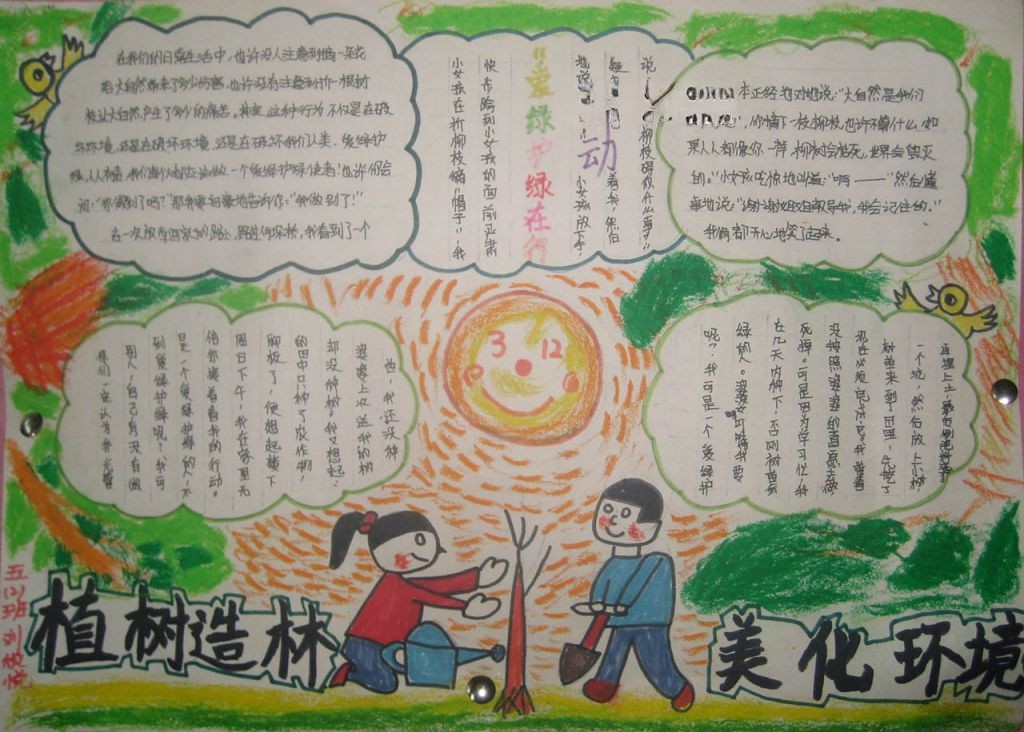 在我们的日常生活中，也许没人注意到摘一朵花
给大自然带来了多少伤害，也许没有注意到折一根树
枝让大自然产生了多少的痛苦。其实，这种行为不仅是在破
坏环境，还是在破坏我们人类。爱绿护
绿，人人有责，我们每个人都应该做一个爱绿护绿使者。也许你会
问：“你做到了吗？”那我要自豪地告诉你：“我做到了！”
在一次放学回家的路上，路过柳树林，我看到了一个
小女孩在折柳枝编“帽子”，我
快步跑到小女孩的面前严肃
“爱绿护绿在行动
地说
小女孩放下手
疑
看着我，然后
说
柳枝碍你什么事？”
本正经地对她说：“大自然是我们
，你摘下一枝柳枝也许不算什么，如
果人人都像你一样，柳树会枯死，世界会毁灭
的。”小女孩吃惊地叫道：“啊——”然后懂
事地说：“谢谢姐姐教导我，我会记住的。”
我俩都开心地笑起来。
3 12
别人，自己有没有做
到爱绿护绿呢？我可
是一个爱绿护绿的人，不
信你接着看我的行动。
周日下午，我在家里无
聊极了，便想起楼下
的田中只种了农作物，
却没种树。我又想起：
婆婆上次送我的树
苗，我还没种
再埋上土，最后浇
一个坑，然后放上小树
树苗来到了田里，先挖了
现在必须完成它。我拿着
没按照婆婆的意愿去做
死掉。可是因为学习忙，我
在几天内种下，否则树苗会
绿的人。婆婆叮嘱我要
呢？我可是一个爱绿护
五(2)班 刘
植树造林
美化环境